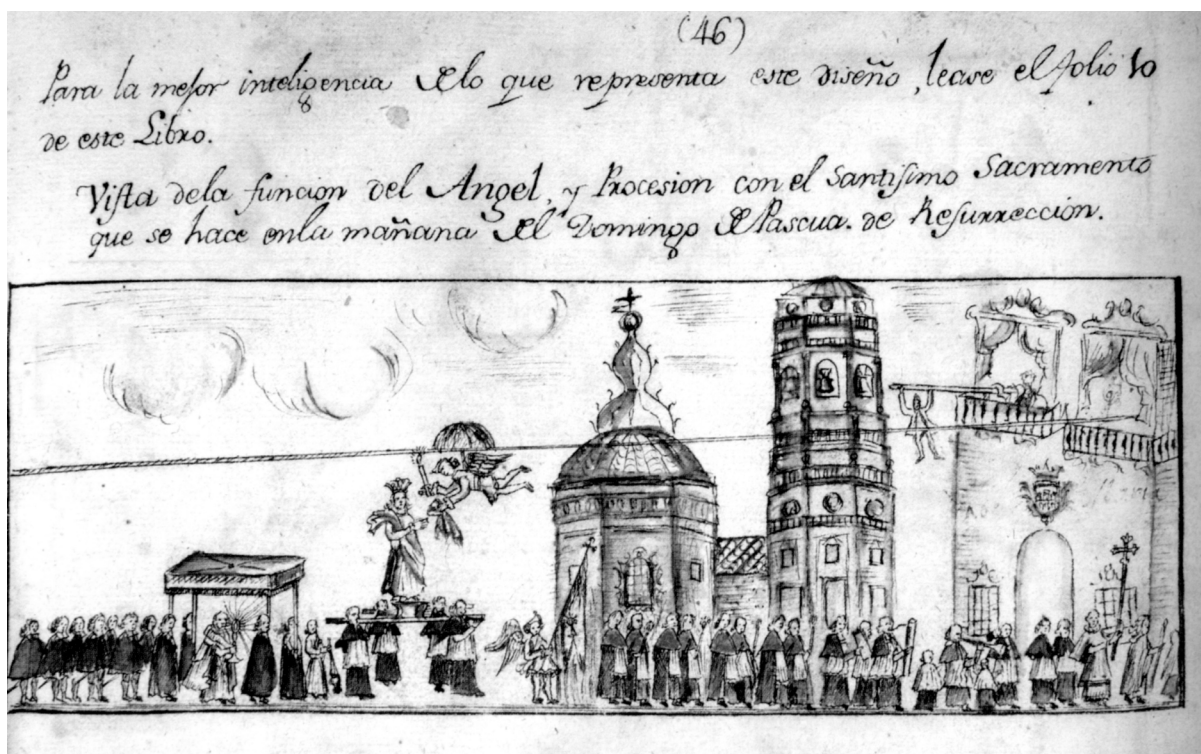 (46)
Para la mejor inteligencia de lo que representa este diseño, lease el folio 10
de este Libro.
Vista dela funcion del Angel, y Procesion con el Santisimo Sacramento
que se hace enla mañana del Domingo de Pascua. de Resurreccion.